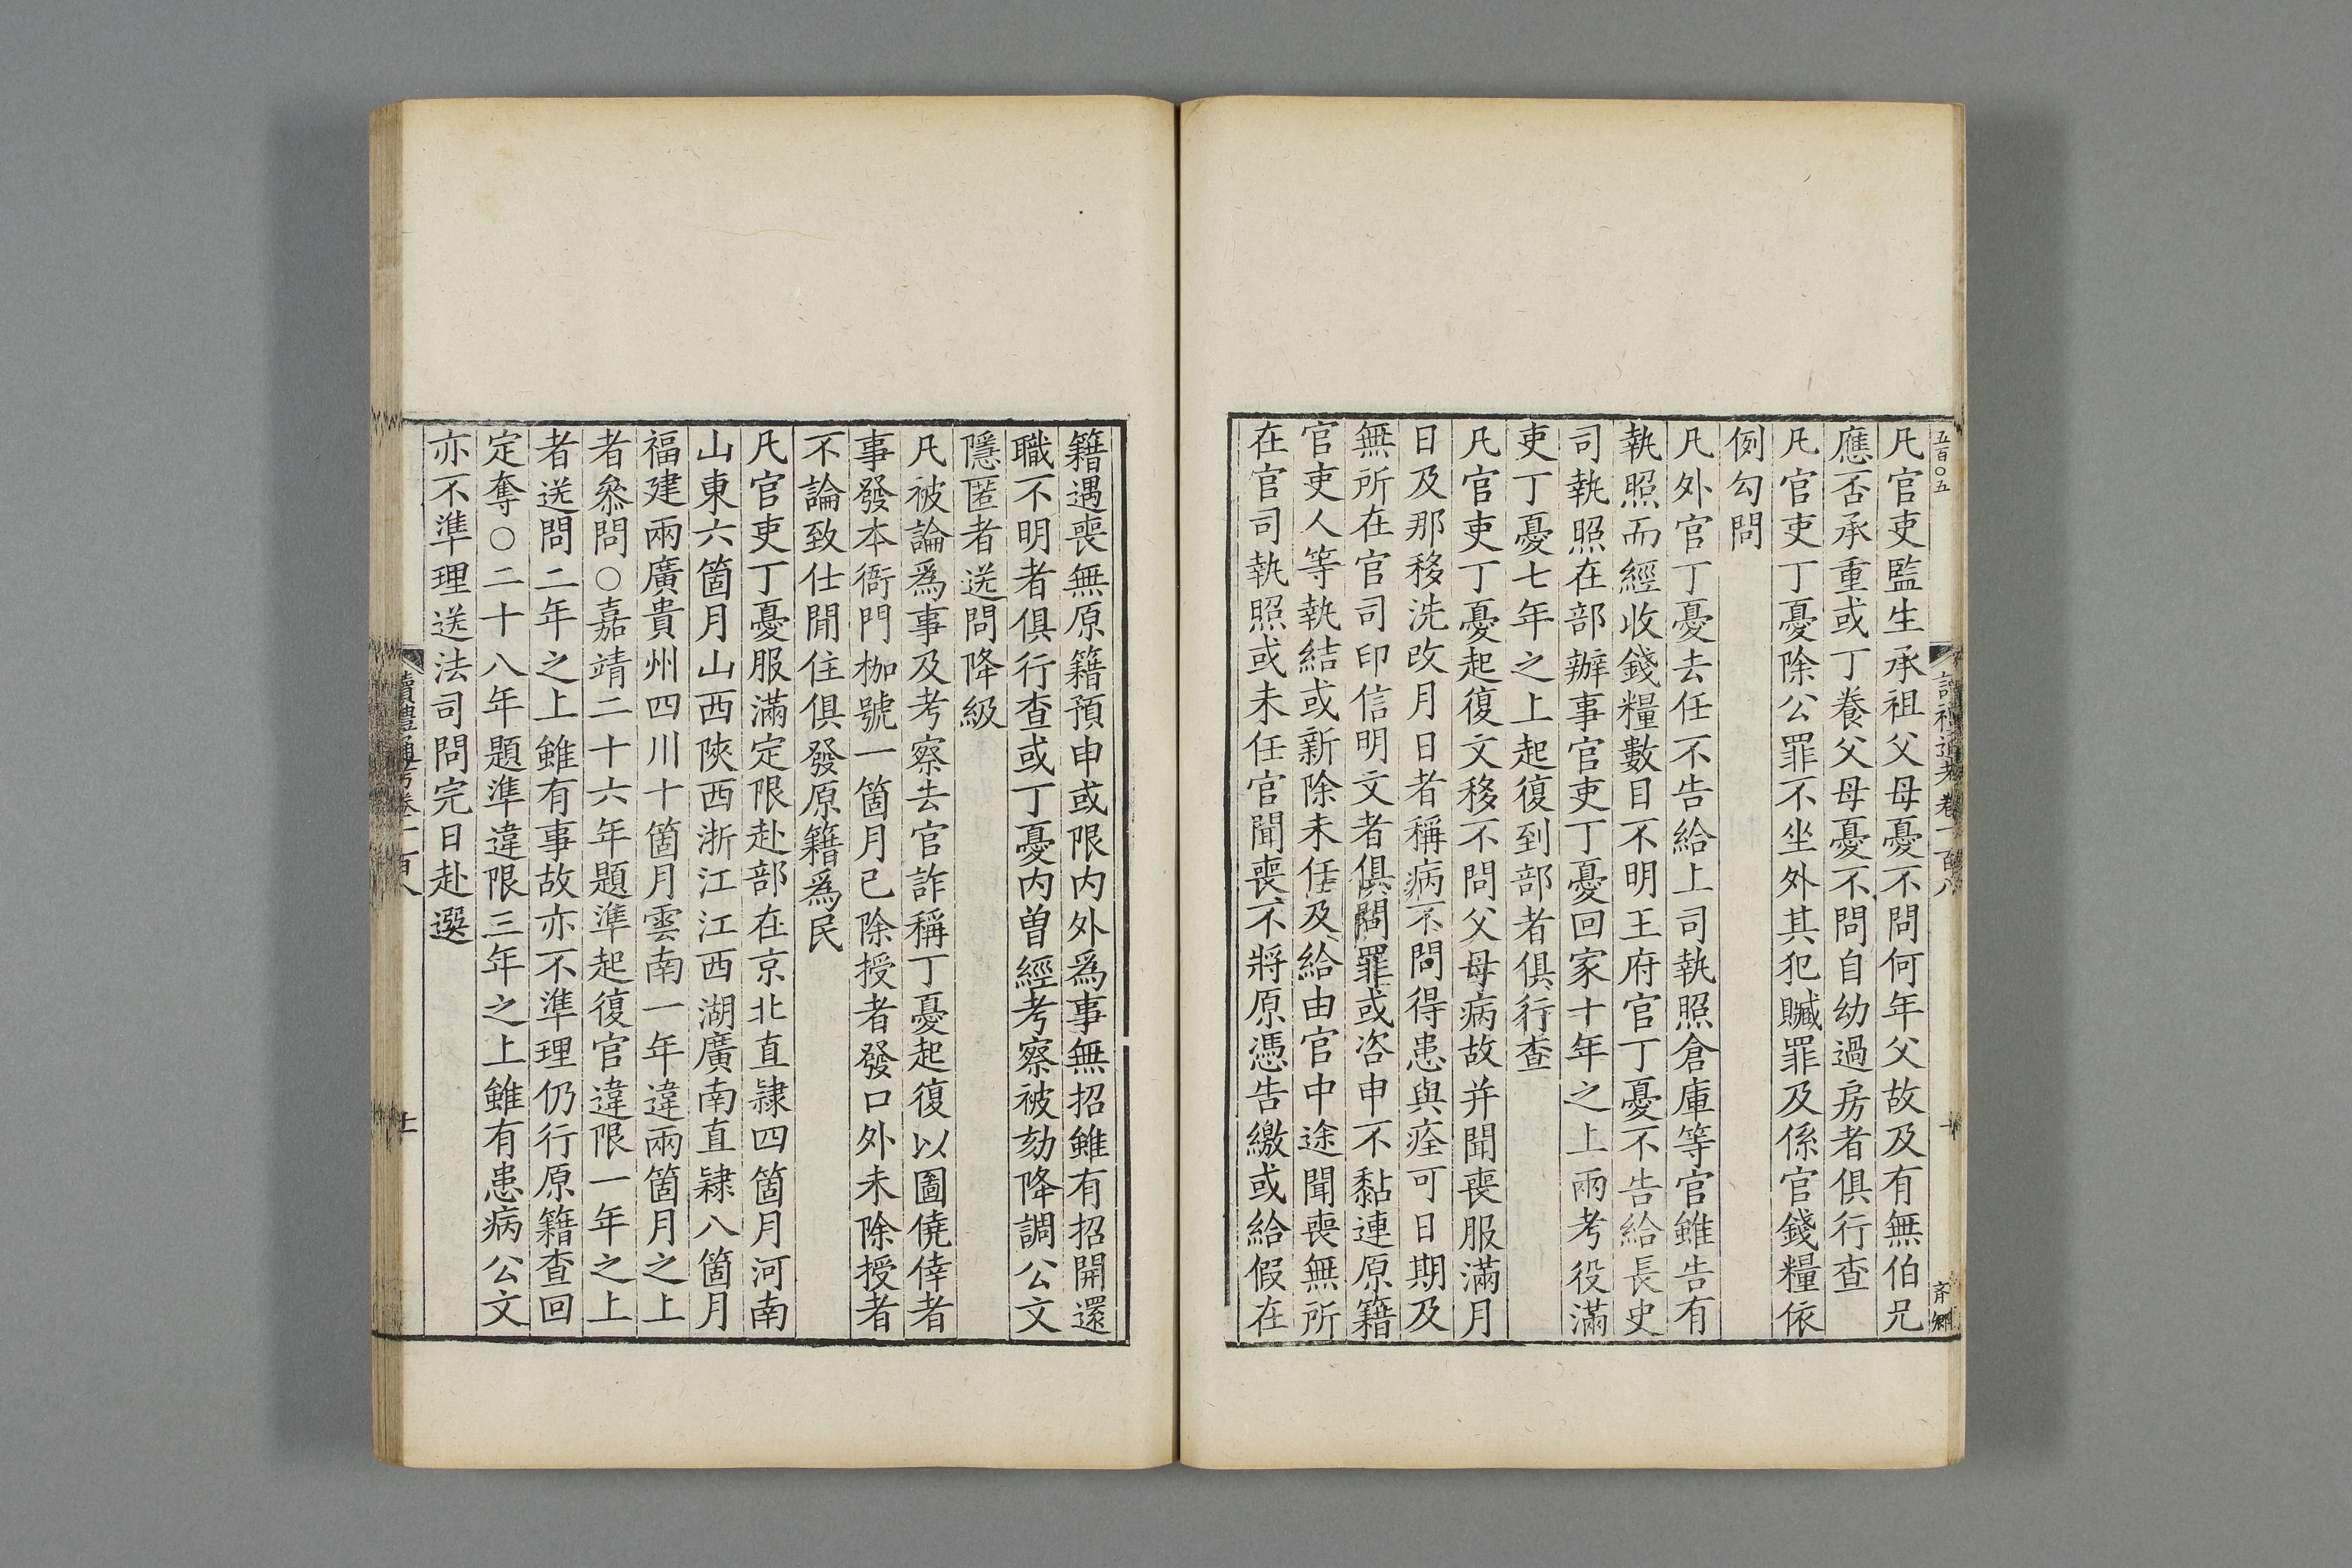 五百〇五
讀禮通考卷一百八
凡官吏監生承祖父母憂不問何年父故及有無伯兄
應否承重或丁養父母憂不問自幼過房者俱行查
凡官吏丁憂除公罪不坐外其犯贓罪及係官錢糧依
例勾問
凡外官丁憂去任不告給上司執照倉庫等官雖告有
執照而經收錢糧數目不明王府官丁憂不告給長史
司執照在部辦事官吏丁憂回家十年之上兩考役滿
吏丁憂七年之上起復到部者俱行查
凡官吏丁憂起復文移不問父母病故并聞喪服滿月
日及那移洗改月日者稱病不問得患與痊可日期及
無所在官司印信明文者俱問罪或咨申不黏連原籍
官吏人等執結或新除未任及給由官中途聞喪無所
在官司執照或未任官聞喪不將原憑告繳或給假在
籍遇喪無原籍預申或限内外爲事無招雖有招開還
職不明者俱行查或丁憂内曽經考察被劾降調公文
隱匿者送問降級
凡被論爲事及考察去官詐稱丁憂起復以圖僥倖者
事發本衙門枷號一箇月已除授者發口外未除授者
不論致仕閒住俱發原籍爲民
凡官吏丁憂服滿定限赴部在京北直隷四箇月河南
山東六箇月山西陝西浙江江西湖廣南直隷八箇月
福建兩廣貴州四川十箇月雲南一年違兩箇月之上
者叅問〇嘉靖二十六年題準起復官違限一年之上
者送問二年之上雖有事故亦不準理仍行原籍查回
定奪〇二十八年題準違限三年之上雖有患病公文
亦不準理送法司問完日赴選
讀禮通考卷一百八